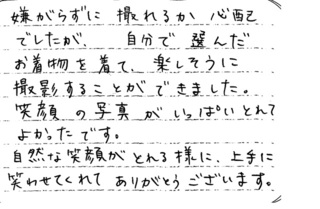 嫌がらずに 撮れるか 心配
でしたが、 自分で 選んだ
お着物を着て、楽しそうに
撮影することができました。
笑顔 の写真 がいっぱいとれて
よかったです。
自然な笑顔がとれる様に、上手に
笑わせてくれて ありがとうございます。